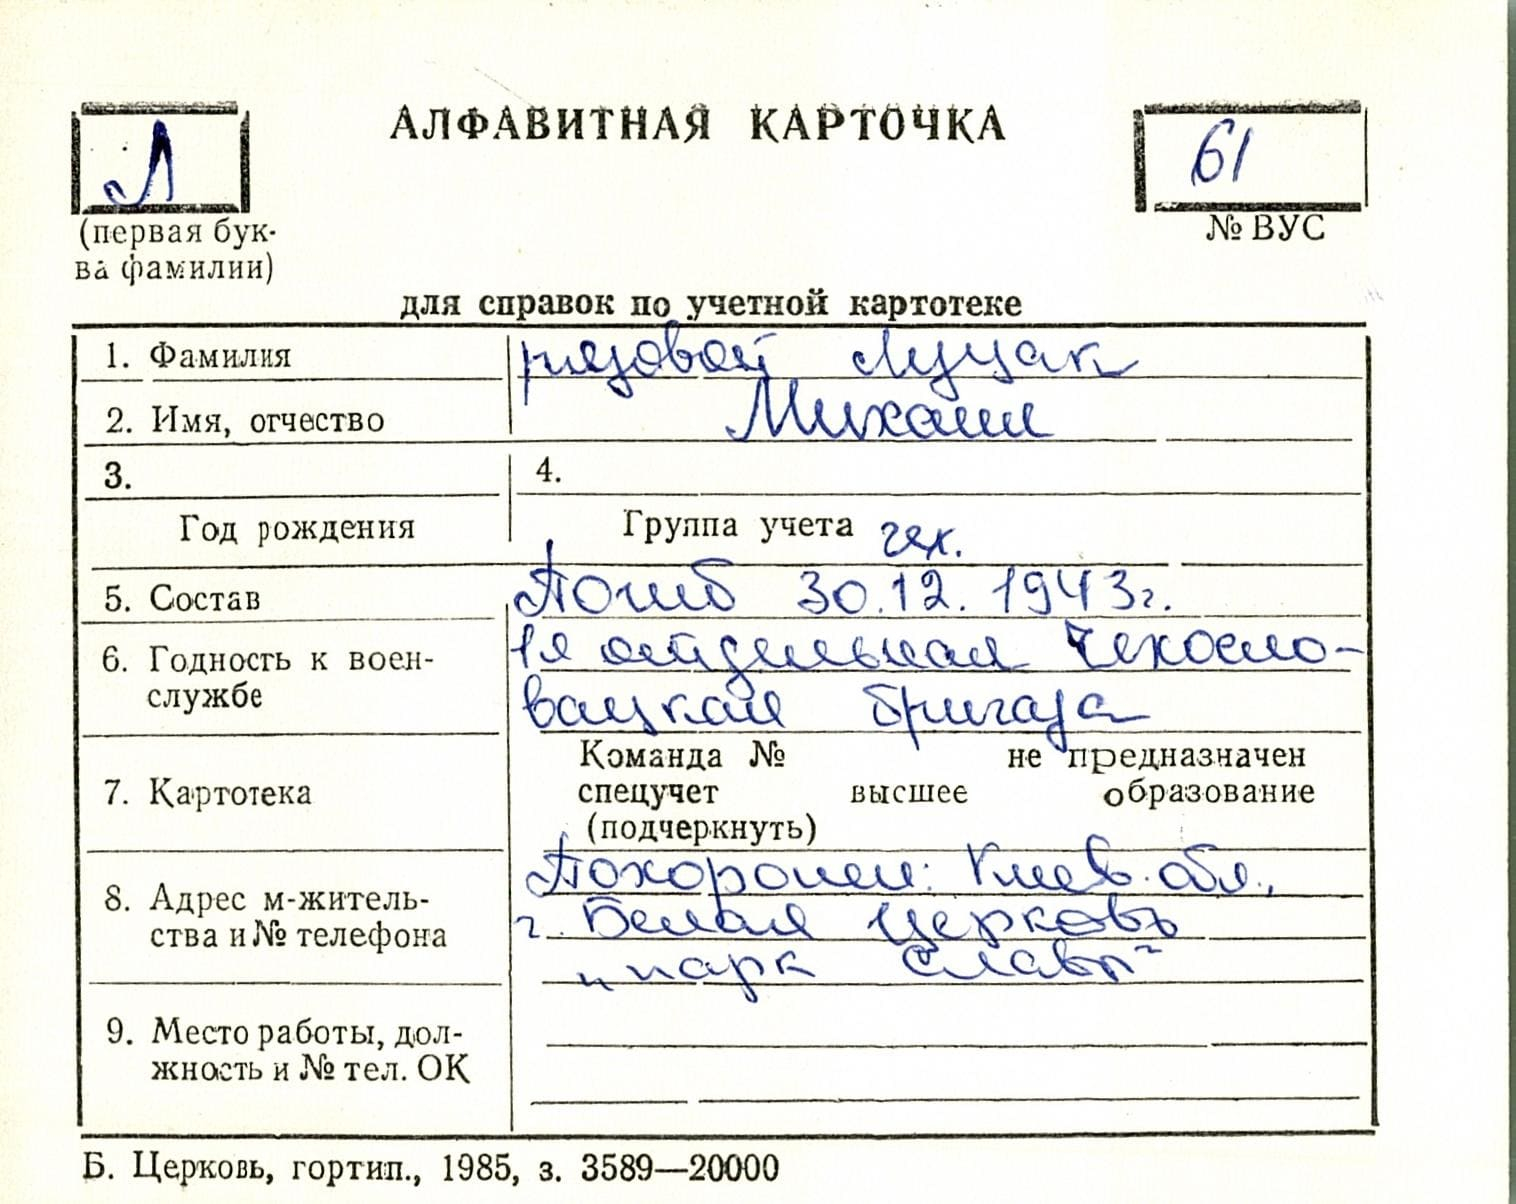 АЛФАВИТНАЯ КАРТОЧКА
Л
61
(первая бук-
ва фамилии)
№ ВУС
для справок по учетной картотеке
1. Фамилия рядовой Луцак
2. Имя, отчество Михаил
3. 4.
Год рождения Группа учета чех.
5. Состав Погиб 30.12.1943г.
6. Годность к воен- 1я отдельная Чехосло-
службе вацкая бригада
Команда № не предназначен
7. Картотека спецучет высшее образование
(подчеркнуть)
Похоронен: Киев. обл.,
8. Адрес м-житель- г. Белая Церковь
ства и № телефона „парк Славы"
9. Место работы, дол-
жность и № тел. ОК
Б. Церковь, гортип., 1985, з. 3589—20000